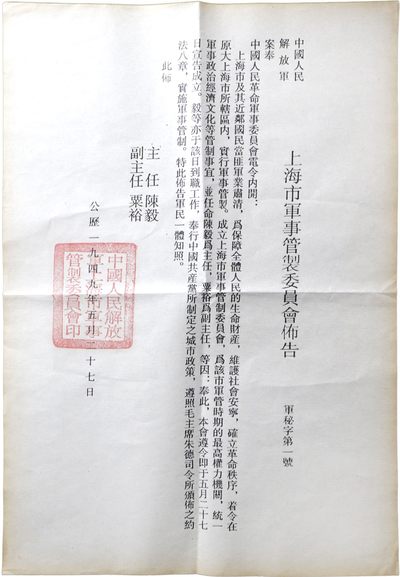 中國人民
解放軍
上海市軍事管製委員會佈告
軍秘字第一號
案奉
中國人民革命軍事委員會電令內開:
上海市及其近鄰國民當匪軍業肅清,爲保障全體人民的生命財産,維護社會安寧,確立革命秩序,着令在
原大上海市所轄區內,實行軍事管製。成立上海市軍事管制委員會,爲該市軍管時期的最高權力機關,統一
軍事政治經濟文化等管制事宜,並任命陳毅爲主任,粟裕爲副主任,等因;奉此,本會遵令即于五月二十七
日宣告成立。毅等亦于該日到職工作,奉行中國共産黨所制定之城市政策,遵照毛主席朱德司令所頒佈之約
法八章,實施軍事管制。特此佈告軍民一體知照。
此佈
主任 陳毅
副主任 粟裕
公歷一九四九年五月二十七日
中國人民解放
軍上海市軍事
管制委員會印